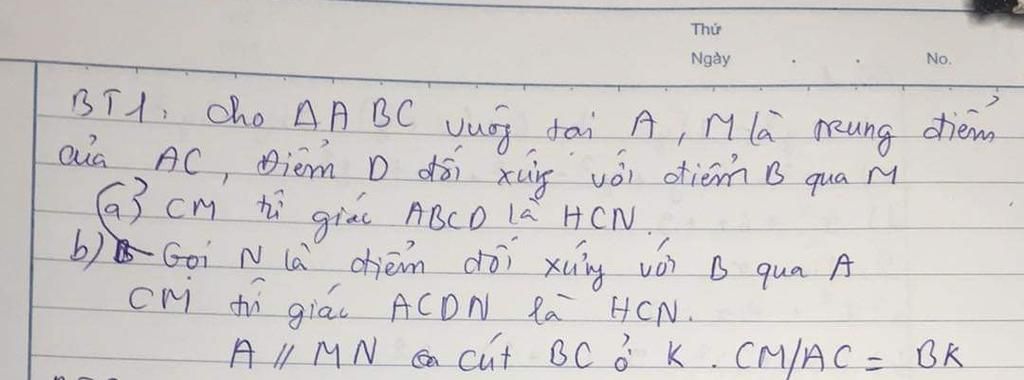 Thứ
Ngày . . No.
BT1. Cho ΔABC vuôg tại A, M là trung điểm
của AC, Điểm D đối xứg với điểm B qua M
a) CM tứ giác ABCD là HCN.
b) Gọi N là điểm đối xứng với B qua A
CM tứ giác ACDN là HCN.
A // MN cắt BC ở K. CM/AC = BK